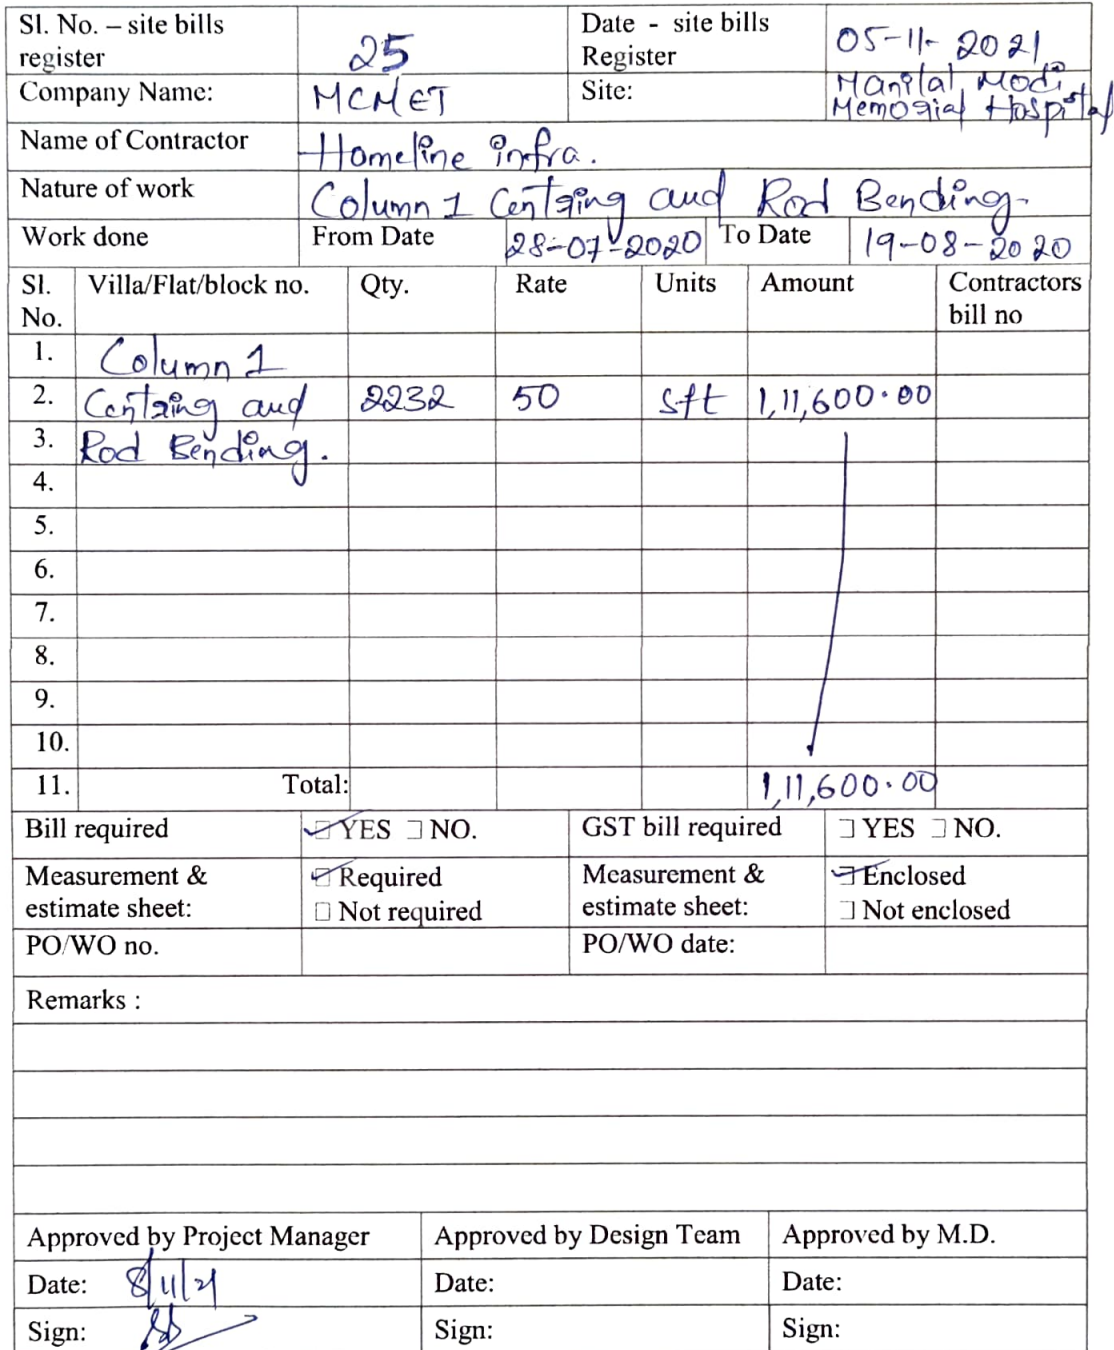 Sl. No. – site bills register 25 Date - site bills Register 05-11-2021
Company Name: MCMET Site: Manilal Modi Memorial Hospital
Name of Contractor Homeline infra.
Nature of work Column 1 Centring and Rod Bending.
Work done From Date 28-07-2020 To Date 19-08-2020
Sl. No. Villa/Flat/block no. Qty. Rate Units Amount Contractors bill no
1. Column 1
2. Centring and 2232 50 sft 1,11,600.00
3. Rod Bending.
4.
5.
6.
7.
8.
9.
10.
11. Total: 1,11,600.00
Bill required ☑ YES ☐ NO. GST bill required ☐ YES ☐ NO.
Measurement & estimate sheet: ☑ Required ☐ Not required Measurement & estimate sheet: ☑ Enclosed ☐ Not enclosed
PO/WO no. PO/WO date:
Remarks :
Approved by Project Manager Approved by Design Team Approved by M.D.
Date: 8/11/21 Date: Date:
Sign: Sign: Sign: